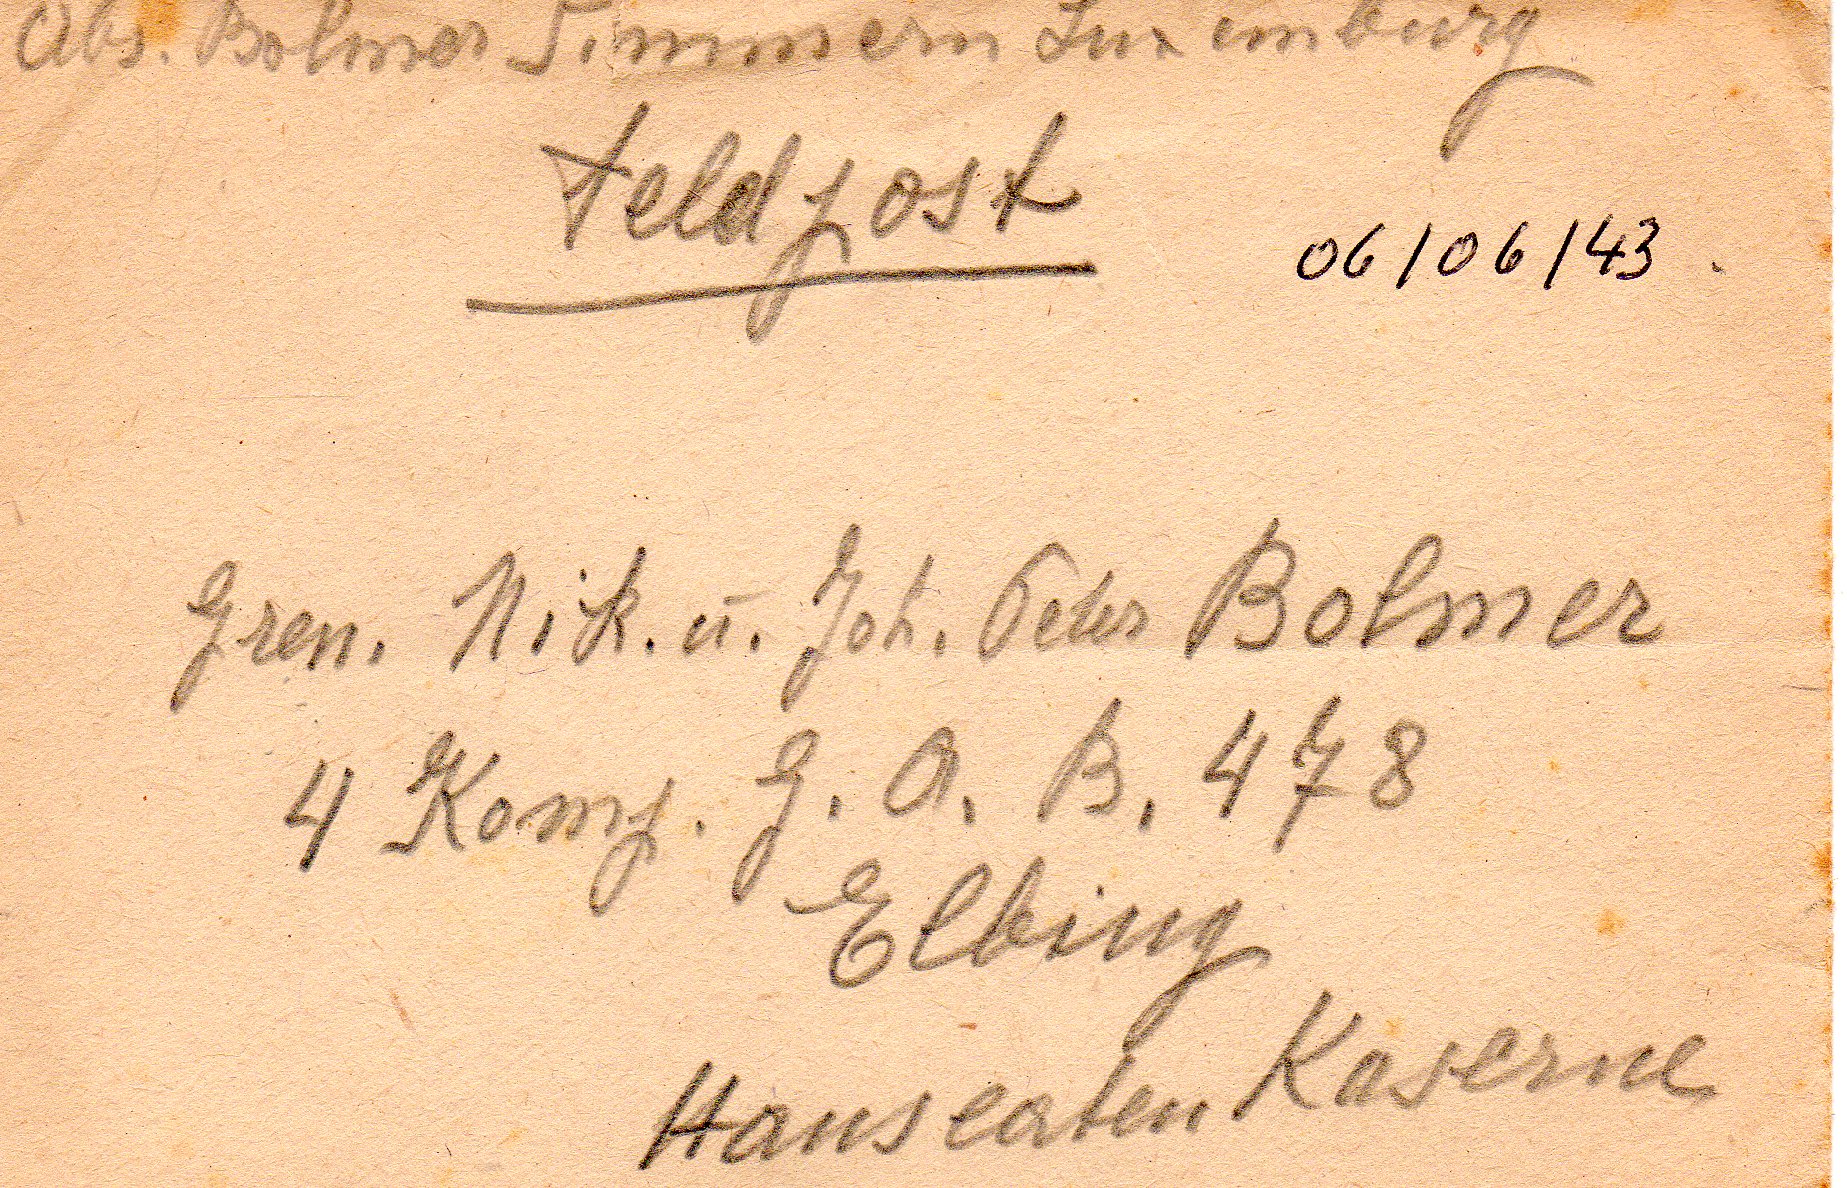 Abs. Bolmer Simmern Luxemburg
Feldpost
06/06/43.
Gren. Nik. u. Joh. Peter Bolmer
4 Komp. G. A. B. 478
Elbing
Hanseaten Kaserne